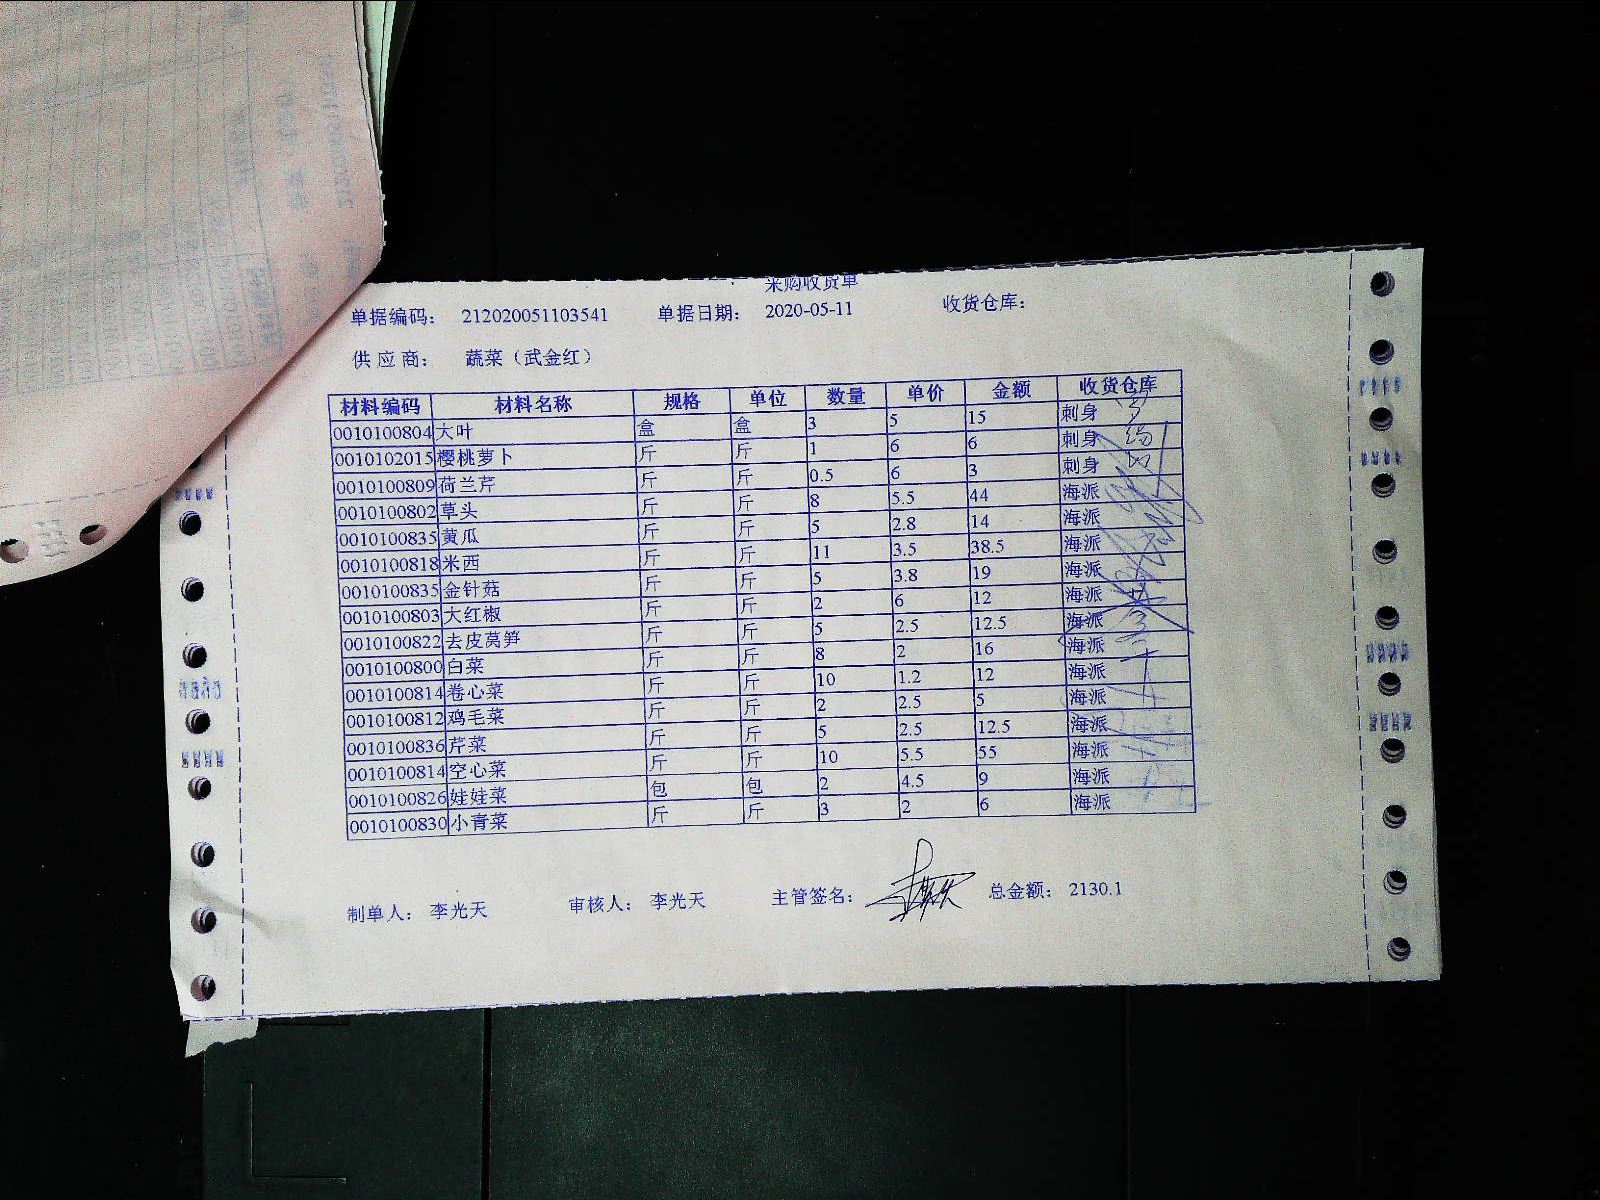 采购收货单
单据编码： 212020051103541 单据日期： 2020-05-11 收货仓库：
供应商： 蔬菜（武金红）
材料编码 材料名称 规格 单位 数量 单价 金额 收货仓库
0010100804 大叶 盒 盒 3 5 15 刺身
0010102015 樱桃萝卜 斤 斤 1 6 6 刺身
0010100809 荷兰芹 斤 斤 0.5 6 3 刺身
0010100802 草头 斤 斤 8 5.5 44 海派
0010100835 黄瓜 斤 斤 5 2.8 14 海派
0010100818 米西 斤 斤 11 3.5 38.5 海派
0010100835 金针菇 斤 斤 5 3.8 19 海派
0010100803 大红椒 斤 斤 2 6 12 海派
0010100822 去皮莴笋 斤 斤 5 2.5 12.5 海派
0010100800 白菜 斤 斤 8 2 16 海派
0010100814 卷心菜 斤 斤 10 1.2 12 海派
0010100812 鸡毛菜 斤 斤 2 2.5 5 海派
0010100836 芹菜 斤 斤 5 2.5 12.5 海派
0010100814 空心菜 斤 斤 10 5.5 55 海派
0010100826 娃娃菜 包 包 2 4.5 9 海派
0010100830 小青菜 斤 斤 3 2 6 海派
制单人： 李光天 审核人： 李光天 主管签名： 总金额： 2130.1